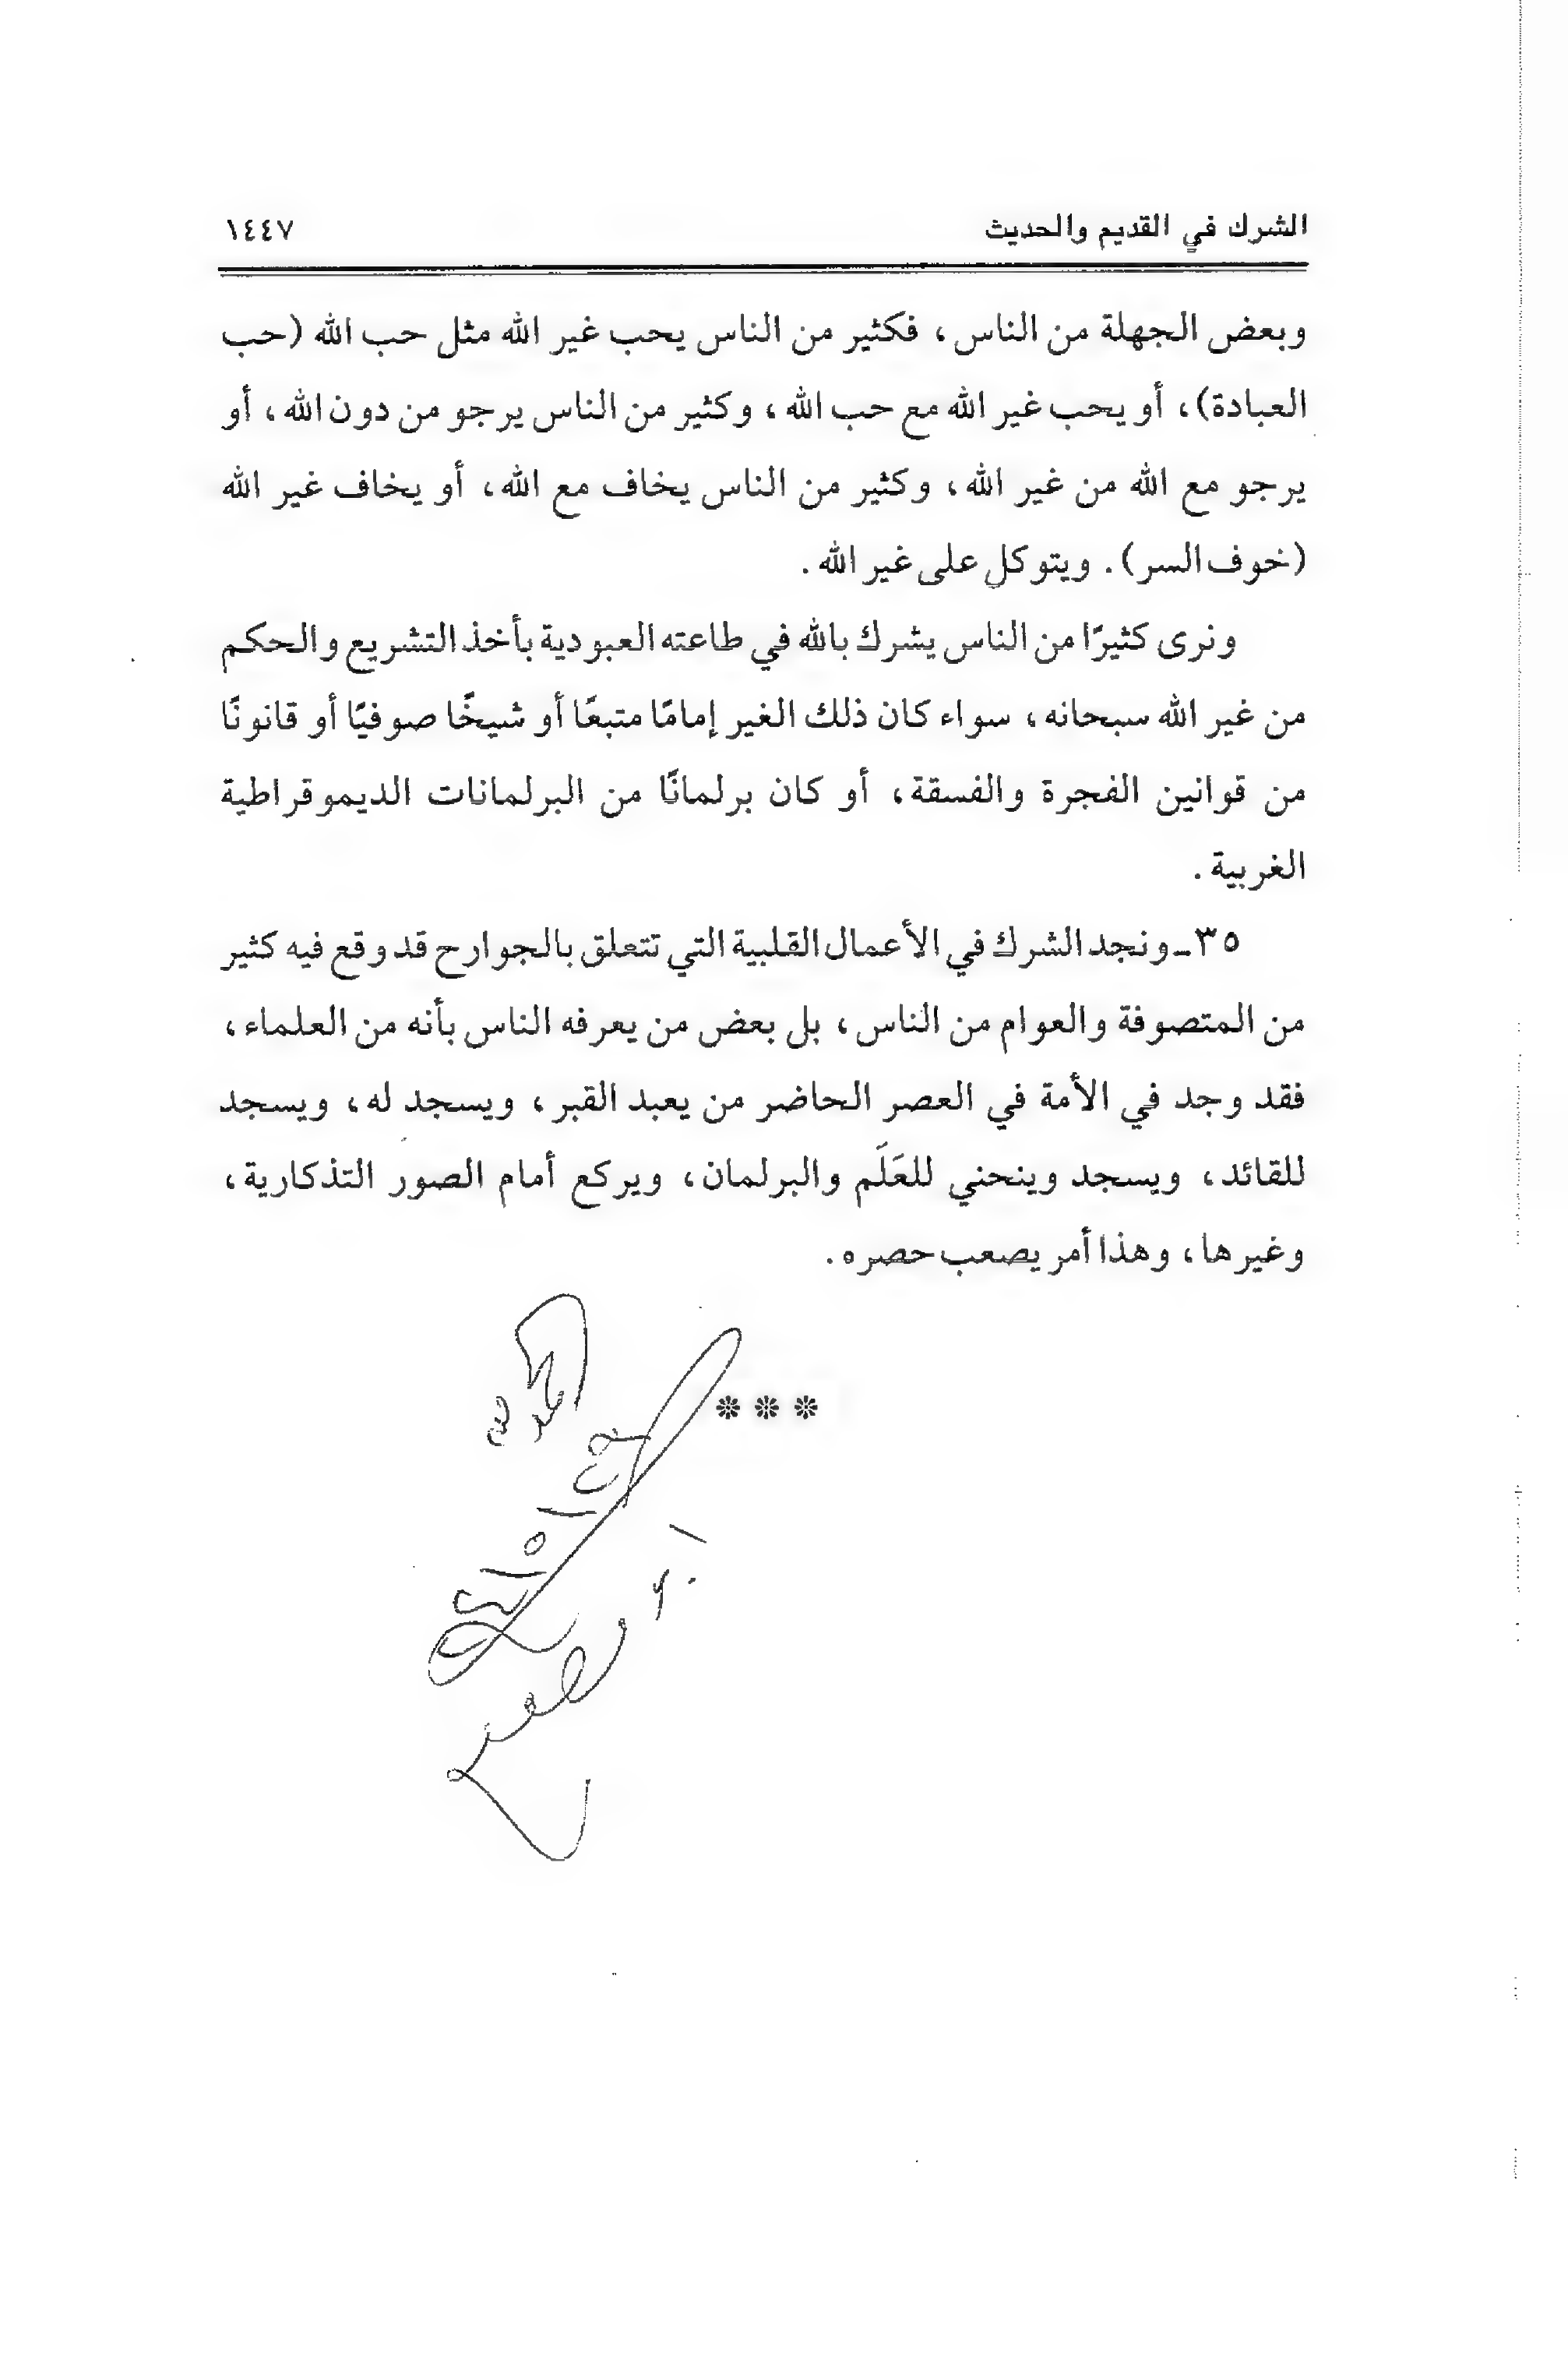 الشرك في القديم والحديث ١٤٤٧
وبعض الجهلة من الناس، فكثير من الناس يحب غير الله مثل حب الله (حب
العبادة)، أو يحب غير الله مع حب الله، وكثير من الناس يرجو من دون الله، أو
يرجو مع الله من غير الله، وكثير من الناس يخاف مع الله، أو يخاف غير الله
(خوف السر). ويتوكل على غير الله.
ونرى كثيرًا من الناس يشرك بالله في طاعته العبودية بأخذ التشريع والحكم
من غير الله سبحانه، سواء كان ذلك الغير إمامًا متبعًا أو شيخًا صوفيًا أو قانونًا
من قوانين الفجرة والفسقة، أو كان برلمانًا من البرلمانات الديموقراطية
الغربية.
٣٥ـ ونجد الشرك في الأعمال القلبية التي تتعلق بالجوارح قد وقع فيه كثير
من المتصوفة والعوام من الناس، بل بعض من يعرفه الناس بأنه من العلماء،
فقد وجد في الأمة في العصر الحاضر من يعبد القبر، ويسجد له، ويسجد
للقائد، ويسجد وينحني للعَلَم والبرلمان، ويركع أمام الصور التذكارية،
وغيرها، وهذا أمر يصعب حصره.
❊ ❊ ❊
الحمد لله